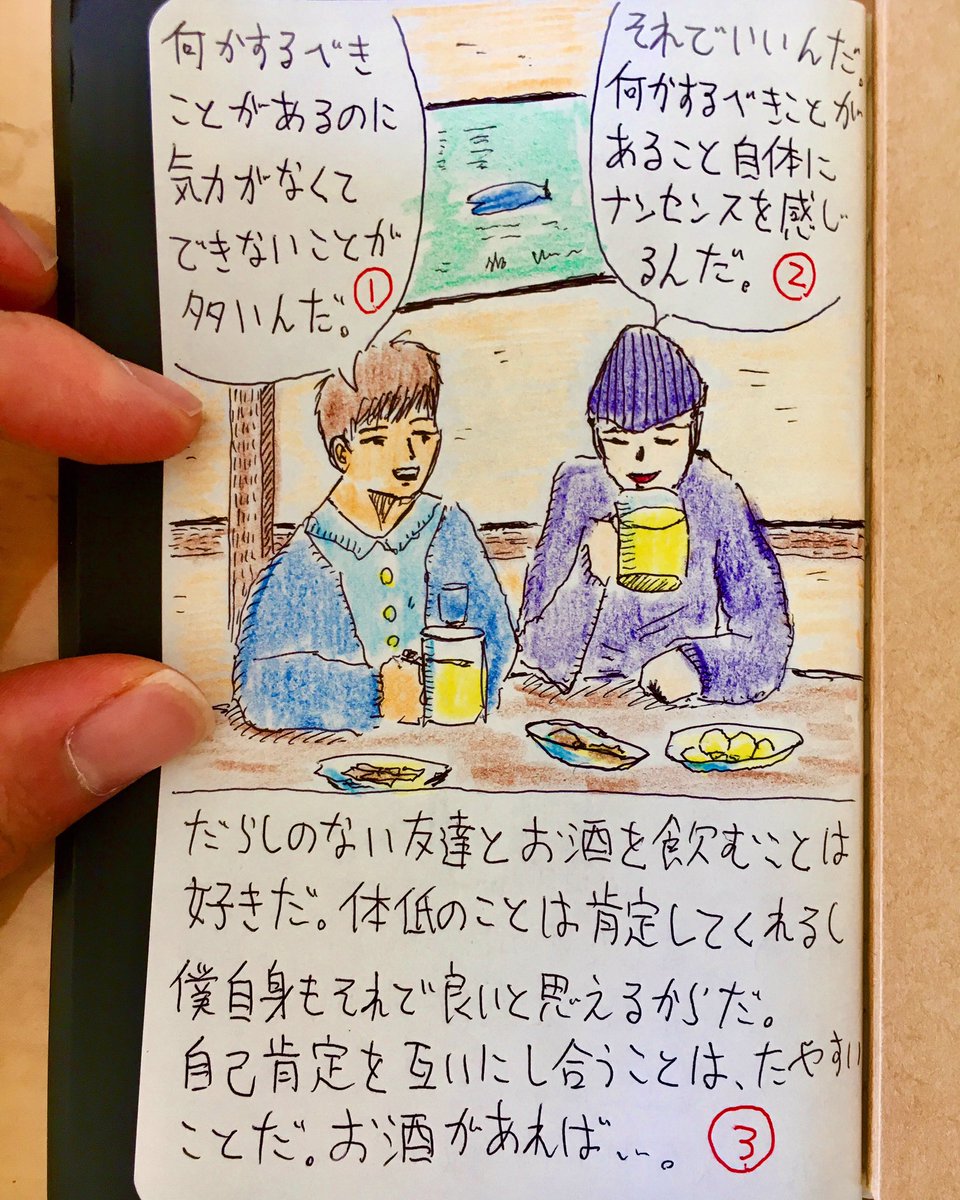 何かするべき
ことがあるのに
気力がなくて
できないことが
多いんだ。①
それでいいんだ。
何かするべきことが
あること自体に
ナンセンスを感じ
るんだ。②
だらしのない友達とお酒を飲むことは
好きだ。体低のことは肯定してくれるし
僕自身もそれで良いと思えるからだ。
自己肯定を互いにし合うことは、たやすい
ことだ。お酒があれば…。③